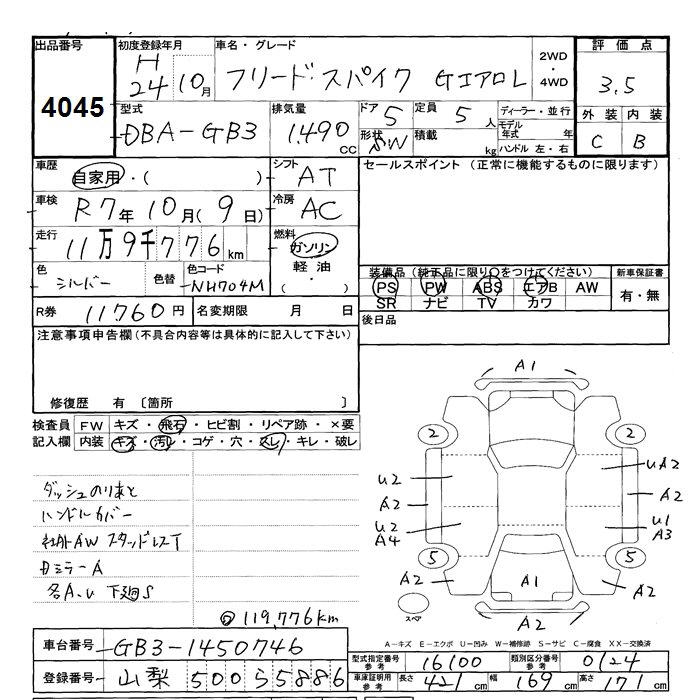 出品番号
4045
初度登録年月
H
24 10月
車名・グレード
フリード スパイク GエアロL
2WD
・
4WD
評価点
3.5
外装 内装
C B
型式
DBA-GB3
排気量
1,490 CC
ドア 5
形状 SW
定員 5 人
積載 kg
ディーラー・並行
モデル年式 年
ハンドル 左・右
車歴
自家用・( )
シフト AT
セールスポイント (正常に機能するものに限ります)
車検
R7年10月(9日)
冷房 AC
走行
11万9千776km
燃料
ガソリン
軽油
( ・ )
色
シルバー
色替
色コード
NH704M
装備品(純正品に限り○をつけてください)
PS PW ABS エアB AW
SR ナビ TV カワ
新車保証書
有・無
R券 11,760円
名変期限 月 日
後日品
注意事項申告欄(不具合内容等は具体的に記入して下さい)
修復歴 有 〔箇所 〕
検査員記入欄
FW キズ・飛石・ヒビ割・リペア跡・×要
内装 キズ・汚レ・コゲ・穴・スレ・キレ・破レ
ダッシュのりあと
ハンドルカバー
社外AW スタッドレスT
Dミラー A
各A、U 下廻S
◎119,776km
A1
2 2
U2 UA2
A2 A2
U2 U1
A4 A3
5 5
A2 A1 A2
スペア
A2
A−キズ E−エクボ U−凹み W−補修跡 S−サビ C−腐食 XX−交換済
車台番号 GB3-1450746
登録番号 山梨 500 ら 5886
型式指定番号 参考 16100
類別区分番号 参考 0124
車庫証明用 参考 長さ 421cm 幅 169cm 高さ 171cm